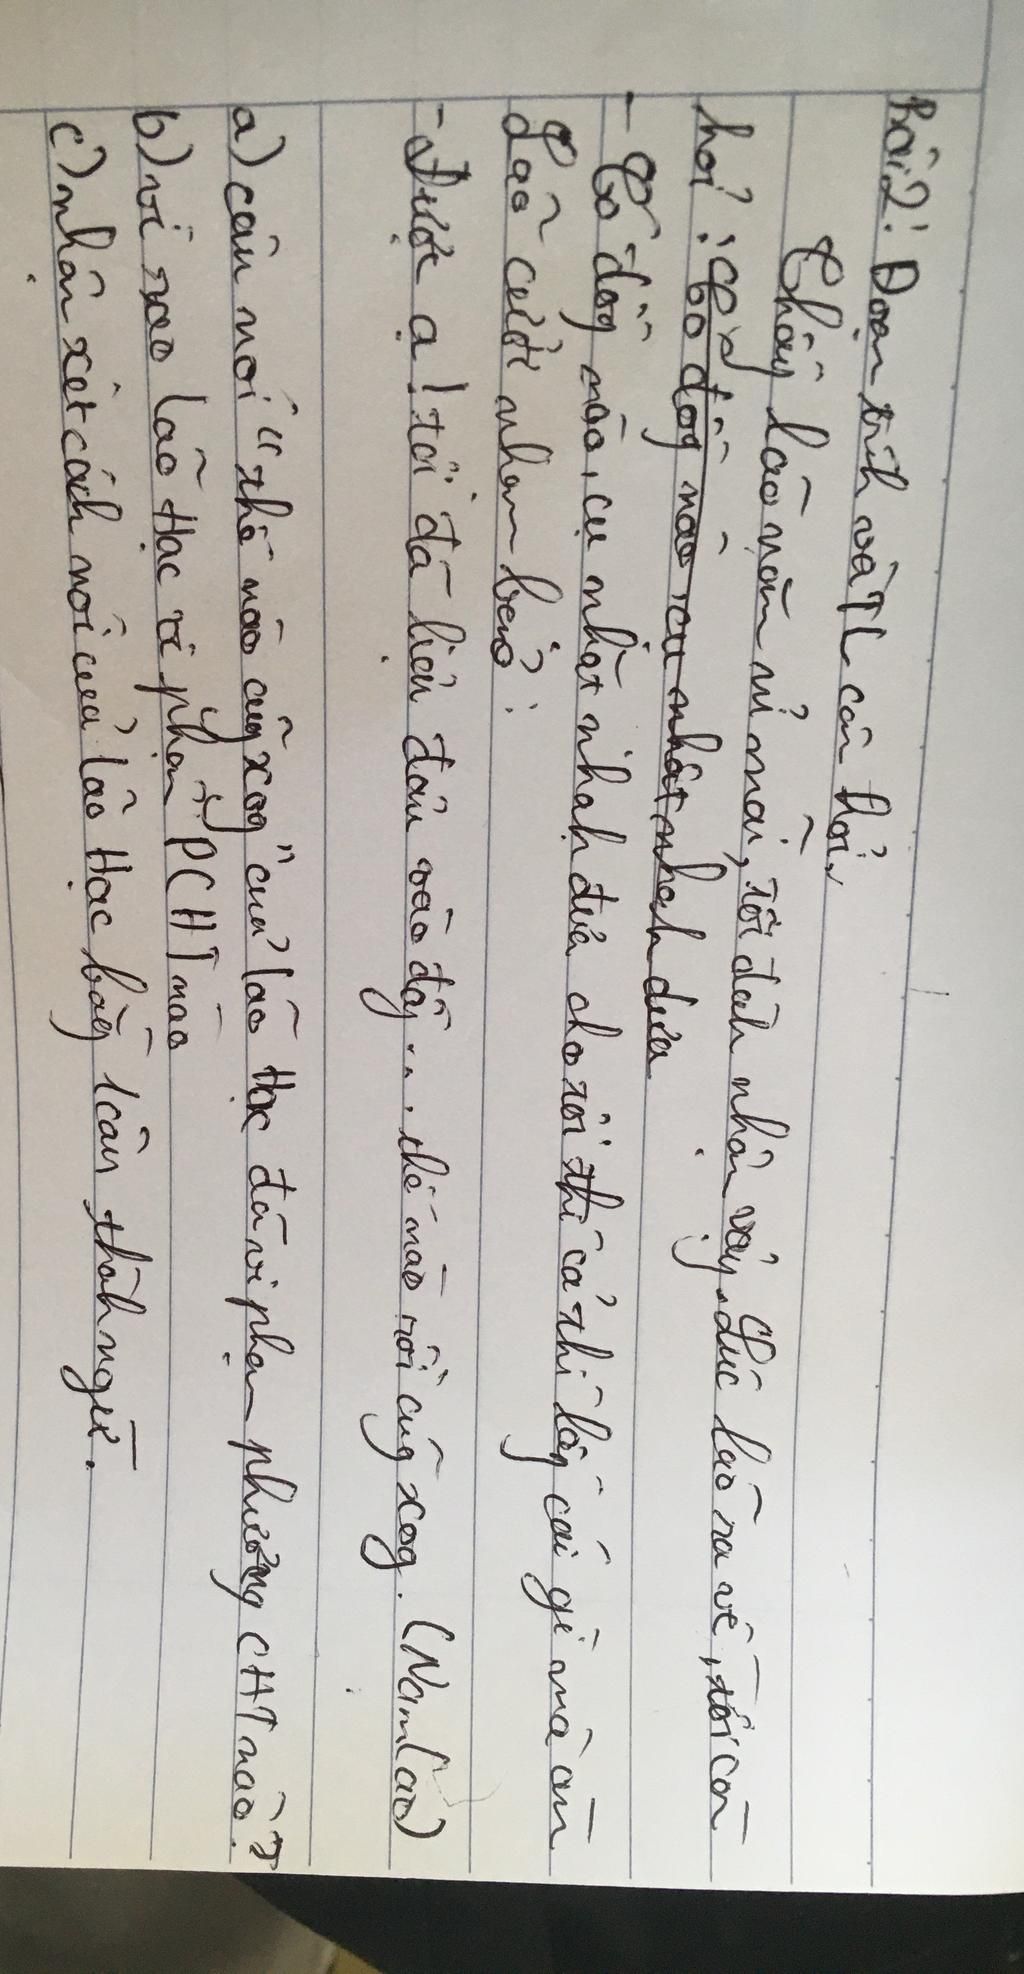 Bài 2: Đoạn trích và TL câu hỏi.
Thấy lão nằn nỉ mãi, tôi đành nhận vậy. Lúc lão ra về, tôi còn
hỏi: có bao đồg nào, cụ nhặt nhạnh đưa
- Có đồg nào, cụ nhặt nhạnh đưa cho tôi thì cả thì lấy cái gì mà ăn
Lão cười nhạm bảo:
- Được ạ! tôi đã liệu đâu vào đấy... thế nào rồi cũg xog. (Nam Cao)
a) câu nói "thế nào cũg xog" của lão Hạc đã vi phạm phương CHT nào?
b) vì sao lão Hạc vi phạm PCHT nào
c) nhận xét cách nói của lão Hạc bằg 1 câu thàh ngữ.